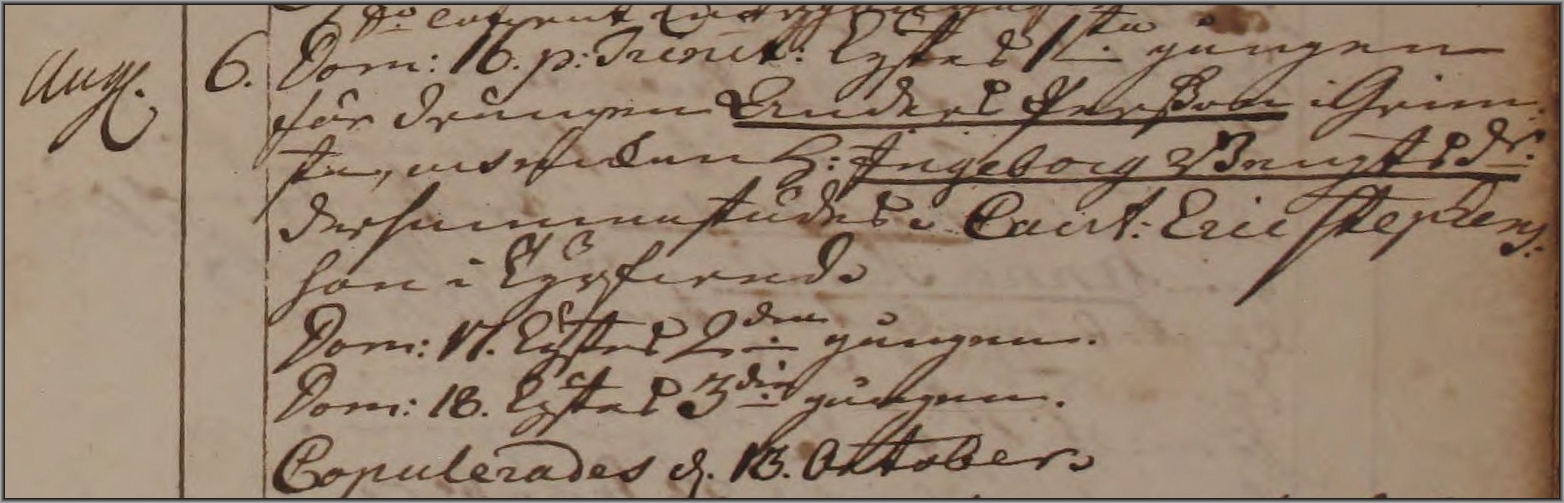 Aug. 6. Dom: 16. p: Trinit: Lystes 1sta gången
för drängen Anders Perßon i Grim
sta, med Pigan H: Ingeborg Bengtsdr.
dersammastädes. Caut: Eric Stephens
son i
Dom: 17. Lystes 2dra gången.
Dom: 18. Lystes 3die gången.
Copulerades d. 13. October.